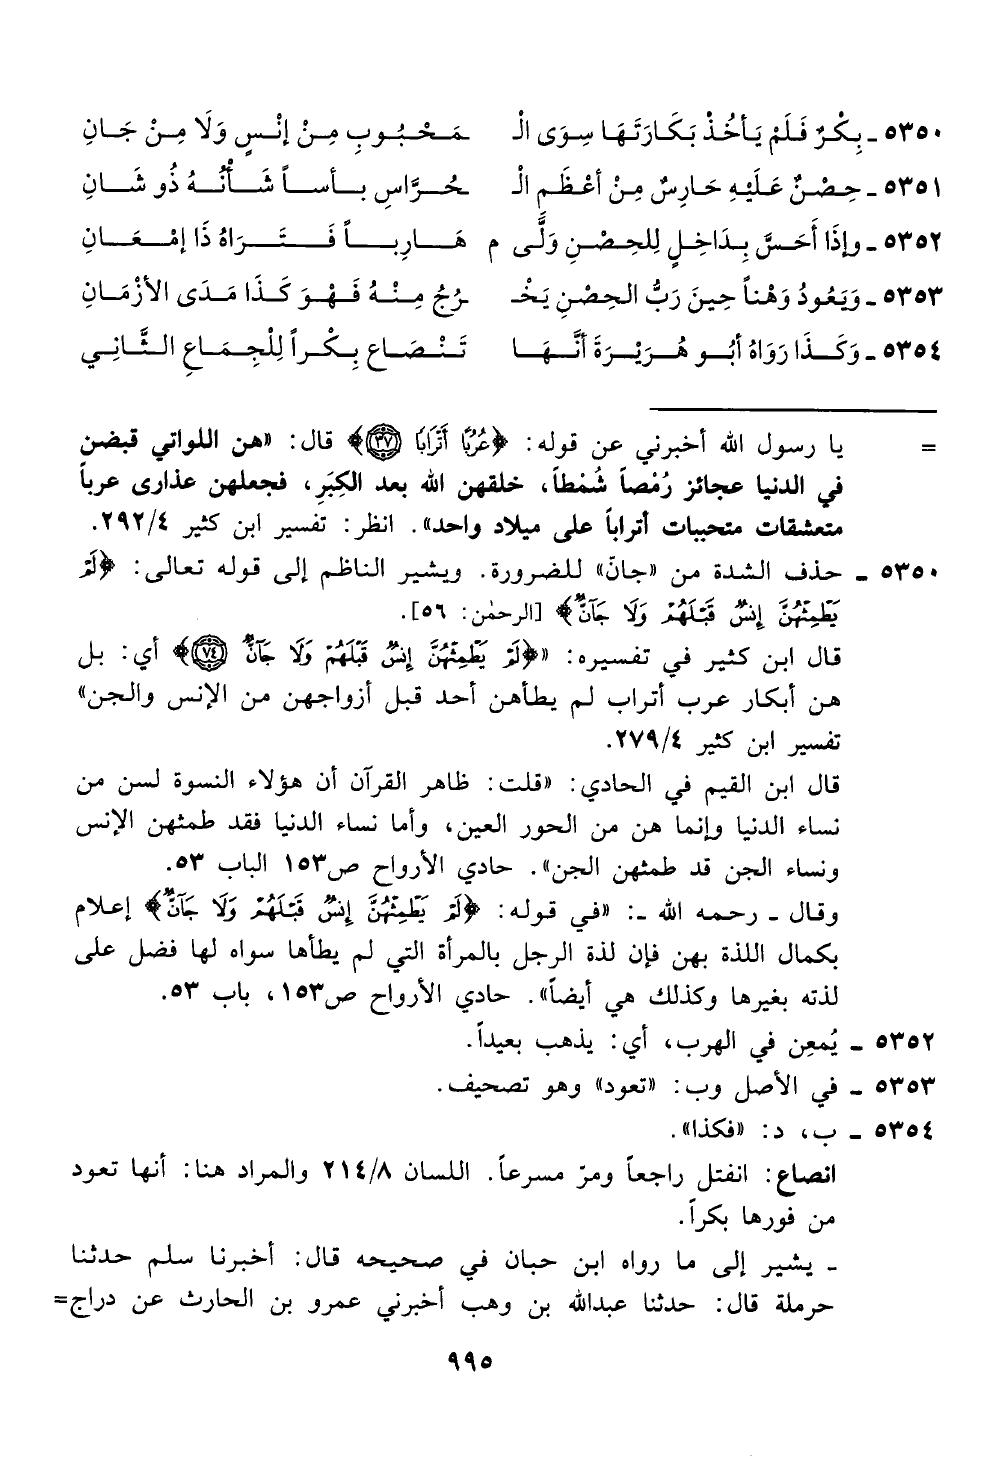 ٥٣٥٠ ـ بِكْرٌ فَلَمْ يَأخُذْ بَكَارَتَهَا سِوَى الْـ مَحْبُوبِ مِنْ إنْسٍ وَلَا مِنْ جَانِ
٥٣٥١ ـ حِصْنٌ عَلَيهِ حَارِسٌ مِنْ أعْظَمِ الْـ حُرَّاسِ بأساً شَأنُهُ ذُو شَانِ
٥٣٥٢ ـ وإذَا أَحَسَّ بِدَاخِلٍ لِلحِصْنِ وَلَّى م هَارِباً فَتَرَاهُ ذَا إمْعَانِ
٥٣٥٣ ـ وَيَعُودُ وَهْناً حِينَ رَبُّ الحِصْنِ يَخْـ رُجُ مِنْهُ فَهْوَ كَذَا مَدَى الأزْمَانِ
٥٣٥٤ ـ وَكَذَا رَوَاهُ أبُو هُرَيْرَةَ أنَّهَا تَنْصَاع بِكْراً لِلْجِمَاعِ الثَّانِي
= يا رسول الله أخبرني عن قوله: ﴿عُرُبًا أَتْرَابًا ٣٧﴾ قال: «هن اللواتي قبضن
في الدنيا عجائز رُمْصاً شُمْطاً، خلقهن الله بعد الكِبَرِ، فجعلهن عذارى عرباً
متعشقات متحببات أتراباً على ميلاد واحد». انظر: تفسير ابن كثير ٢٩٢/٤.
٥٣٥٠ ـ حذف الشدة من «جانّ» للضرورة. ويشير الناظم إلى قوله تعالى: ﴿لَمْ
يَطْمِثْهُنَّ إِنسٌ قَبْلَهُمْ وَلَا جَآنٌّ﴾ [الرحمٰن: ٥٦].
قال ابن كثير في تفسيره: «﴿لَمْ يَطْمِثْهُنَّ إِنسٌ قَبْلَهُمْ وَلَا جَآنٌّ ٧٤﴾ أي: بل
هن أبكار عرب أتراب لم يطأهن أحد قبل أزواجهن من الإنس والجن»
تفسير ابن كثير ٢٧٩/٤.
قال ابن القيم في الحادي: «قلت: ظاهر القرآن أن هؤلاء النسوة لسن من
نساء الدنيا وإنما هن من الحور العين، وأما نساء الدنيا فقد طمثهن الإنس
ونساء الجن قد طمثهن الجن». حادي الأرواح ص١٥٣ الباب ٥٣.
وقال ـ رحمه الله ـ: «في قوله: ﴿لَمْ يَطْمِثْهُنَّ إِنسٌ قَبْلَهُمْ وَلَا جَآنٌّ﴾ إعلام
بكمال اللذة بهن فإن لذة الرجل بالمرأة التي لم يطأها سواه لها فضل على
لذته بغيرها وكذلك هي أيضاً». حادي الأرواح ص١٥٣، باب ٥٣.
٥٣٥٢ ـ يُمعِن في الهرب، أي: يذهب بعيداً.
٥٣٥٣ ـ في الأصل وب: «تعود» وهو تصحيف.
٥٣٥٤ ـ ب، د: «فكذا».
انصاع: انفتل راجعاً ومرّ مسرعاً. اللسان ٢١٤/٨ والمراد هنا: أنها تعود
من فورها بكراً.
ـ يشير إلى ما رواه ابن حبان في صحيحه قال: أخبرنا سلم حدثنا
حرملة قال: حدثنا عبدالله بن وهب أخبرني عمرو بن الحارث عن دراج=
٩٩٥